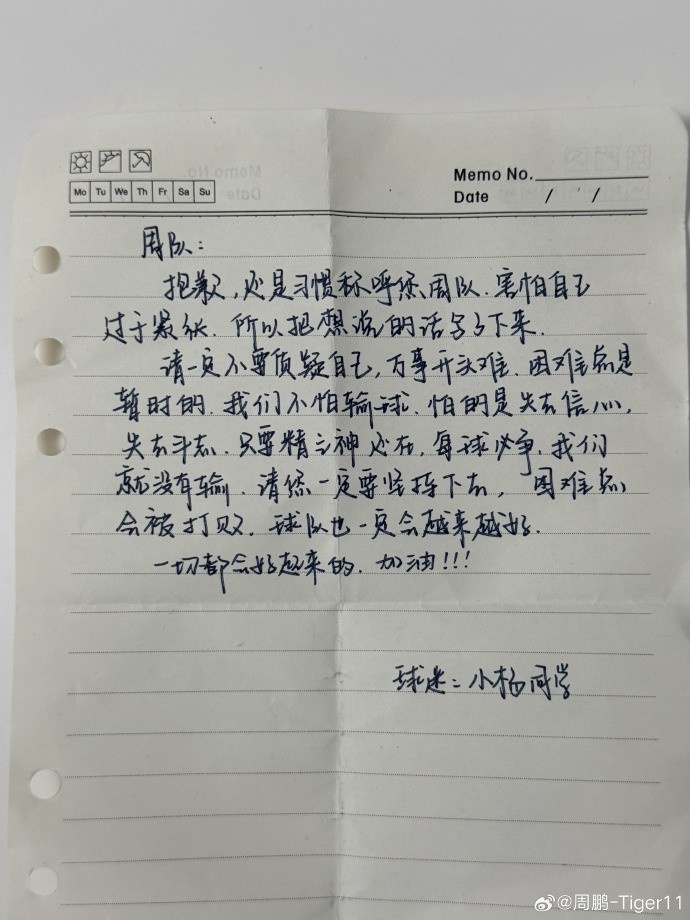 Memo No.
Mo Tu We Th Fr Sa Su
Date / /
周队：
抱歉，还是习惯称呼您周队．害怕自己
过于紧张．所以把想说的话写了下来．
请一定不要质疑自己，万事开头难．困难总是
暂时的．我们不怕输球．怕的是失去信心，
失去斗志．只要精气神还在，每球必争，我们
就没有输．请您一定要坚持下去，困难总
会被打败．球队也一定会越来越好．
一切都会好起来的．加油!!!
球迷：小杨同学
@周鹏-Tiger11